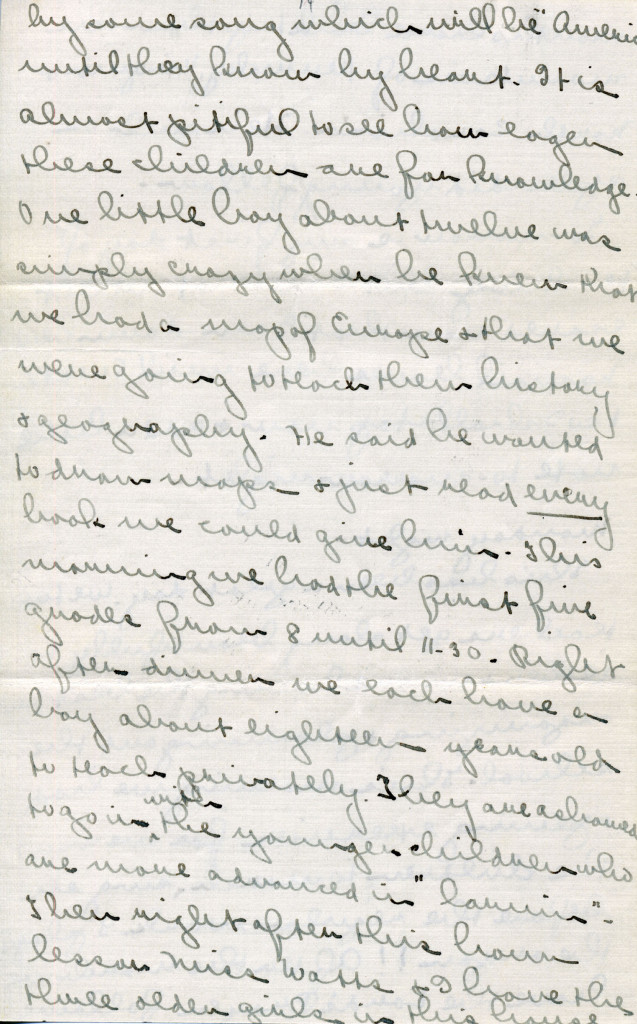 by some song which will be "Americ
until they know by heart. It is
almost pitiful to see how eager
these children are for knowledge.
One little boy about twelve was
simply crazy when he knew that
we had a map of Europe & that we
were going to teach them history
& geography. He said he wanted
to draw maps & just read every
book we could give him. This
morning we had the first five
grades from 8 until 11-30. Right
after dinner we each have a
boy about eighteen years old
to teach privately. They are ashamed
to go in with the younger children who
are more advanced in "larnin".
Then right after this hour
lesson Miss Watts & I have the
three older girls in this house